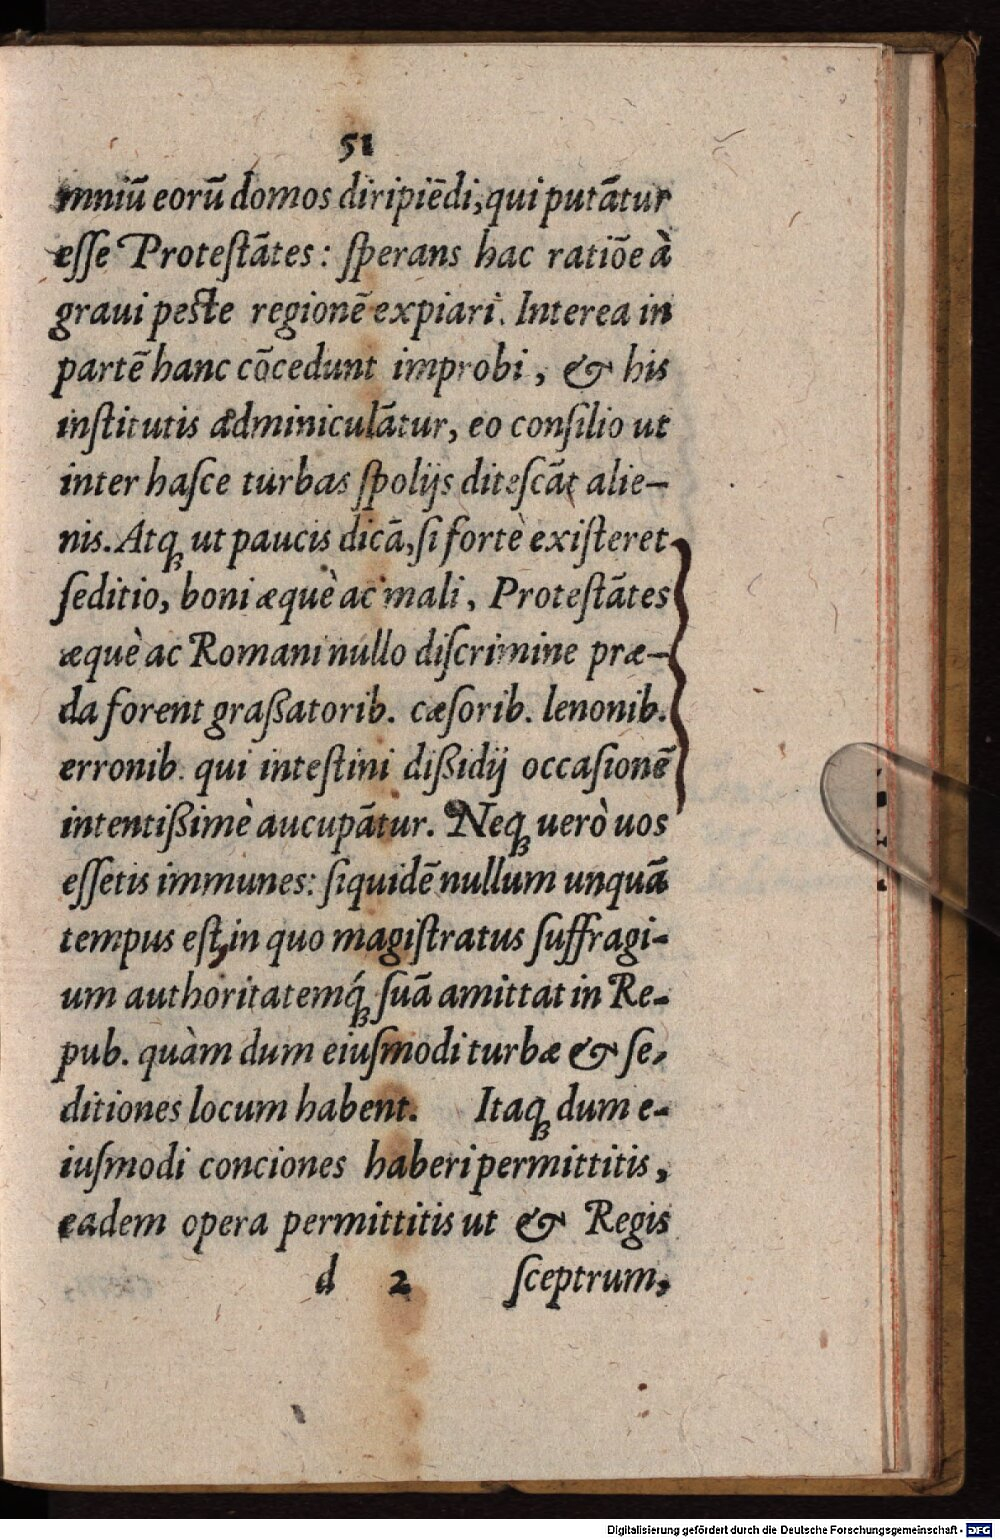 51
mniũ eorũ domos diripiẽdi, qui putãtur
esse Protestãtes: sperans hac ratiõe à
graui peste regionẽ expiari. Interea in
partẽ hanc cõcedunt improbi, & his
institutis adminiculãtur, eo consilio ut
inter hasce turbas spolijs ditescãt alie-
nis. Atq; ut paucis dicã, si fortè existeret
seditio, boni æquè ac mali, Protestãtes
æquè ac Romani nullo discrimine præ-
da forent graßatorib. cæsorib. lenonib.
erronib. qui intestini dißidij occasionẽ
intentißimè aucupãtur. Neq; uerò uos
essetis immunes: siquidẽ nullum unquã
tempus est, in quo magistratus suffragi-
um authoritatemq́; suã amittat in Re-
pub. quàm dum eiusmodi turbæ & se-
ditiones locum habent. Itaq; dum e-
iusmodi conciones haberi permittitis,
eadem opera permittitis ut & Regis
d 2 sceptrum,
Digitalisierung gefördert durch die Deutsche Forschungsgemeinschaft - DFG